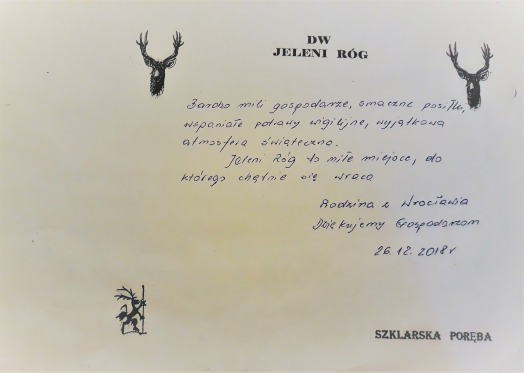 DW
JELENI RÓG
Bardzo mili gospodarze, smaczne posiłki,
wspaniałe potrawy wigilijne, wyjątkowa
atmosfera świąteczna.
Jeleni Róg to miłe miejsce, do
którego chętnie się wraca
Rodzina z Wrocławia
Dziękujemy Gospodarzom
26.12.2018r
SZKLARSKA PORĘBA